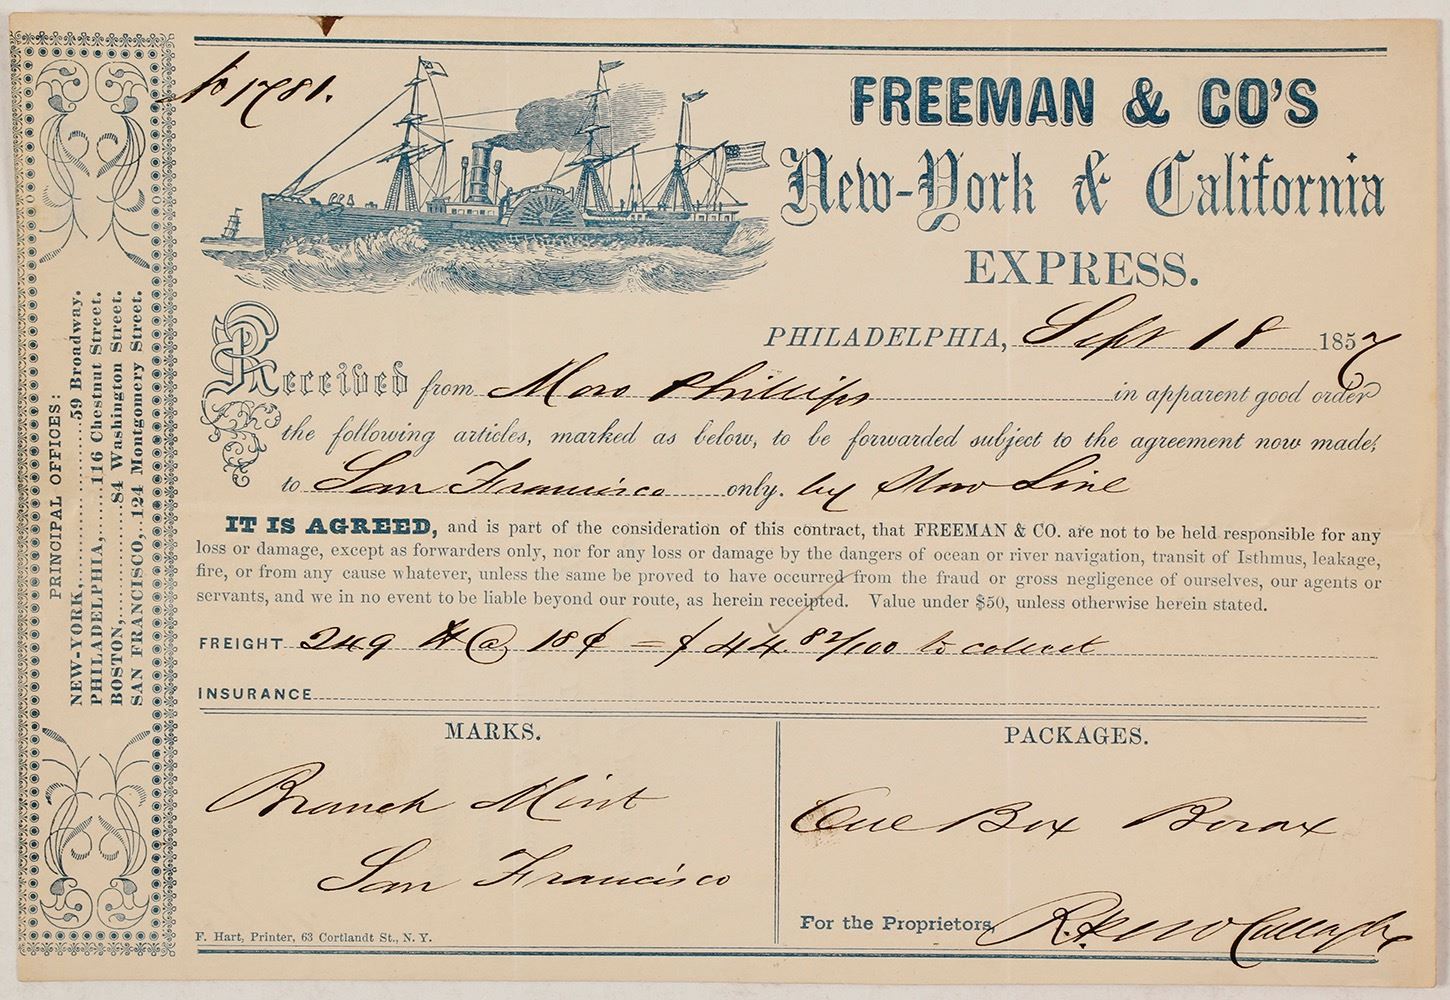 No 1781.
FREEMAN & CO'S
New-York & California
EXPRESS.
PHILADELPHIA, Sept 18 1857
Received from Moro Phillips in apparent good order
the following articles, marked as below, to be forwarded subject to the agreement now made,
to San Francisco only. by Slow Line
IT IS AGREED, and is part of the consideration of this contract, that FREEMAN & CO. are not to be held responsible for any
loss or damage, except as forwarders only, nor for any loss or damage by the dangers of ocean or river navigation, transit of Isthmus, leakage,
fire, or from any cause whatever, unless the same be proved to have occurred from the fraud or gross negligence of ourselves, our agents or
servants, and we in no event to be liable beyond our route, as herein receipted. Value under $50, unless otherwise herein stated.
FREIGHT 249 # @ 18 ¢ = $ 44. 82/100 to collect
INSURANCE
MARKS.
Branch Mint
San Francisco
PACKAGES.
One Box Borax
For the Proprietors,
F. Hart, Printer, 63 Cortlandt St., N. Y.
PRINCIPAL OFFICES:
NEW-YORK, 59 Broadway.
PHILADELPHIA, 116 Chestnut Street.
BOSTON, 84 Washington Street.
SAN FRANCISCO, 124 Montgomery Street.